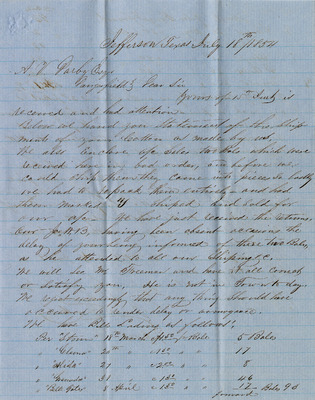 Jefferson Texas July 18th 1854
A. V. Darby Esqr
Dear Sir
Yours of 15th Inst is
received and had attention.
Below we hand you statement of the Ship
ment of your Cotton as made by us,
We also enclose a/c sales two Bales which were
received here in bad order, and before we
could ship them they came into pieces so badly
we had to repack them entirely and had
them marked & shiped and sold for
our a/c. We have just received the returns.
Our having been absent occasions the
delay of your being informed of these two Bales
as he attended to all our Shipping &c.
We will see Mr Freeman and have it all correct
or satisfy you, He is not in Town to day.
We regret exceedingly that any thing should have
occurred to render delay or annoyance.
We have Bill Lading as follows;
Per Storm 18th March 5 Bales
" 20th " " " 17
" 21 " " " 8
" 31 " " " 46
" Belle Gates 8 April " " 17 Bales 93
forward